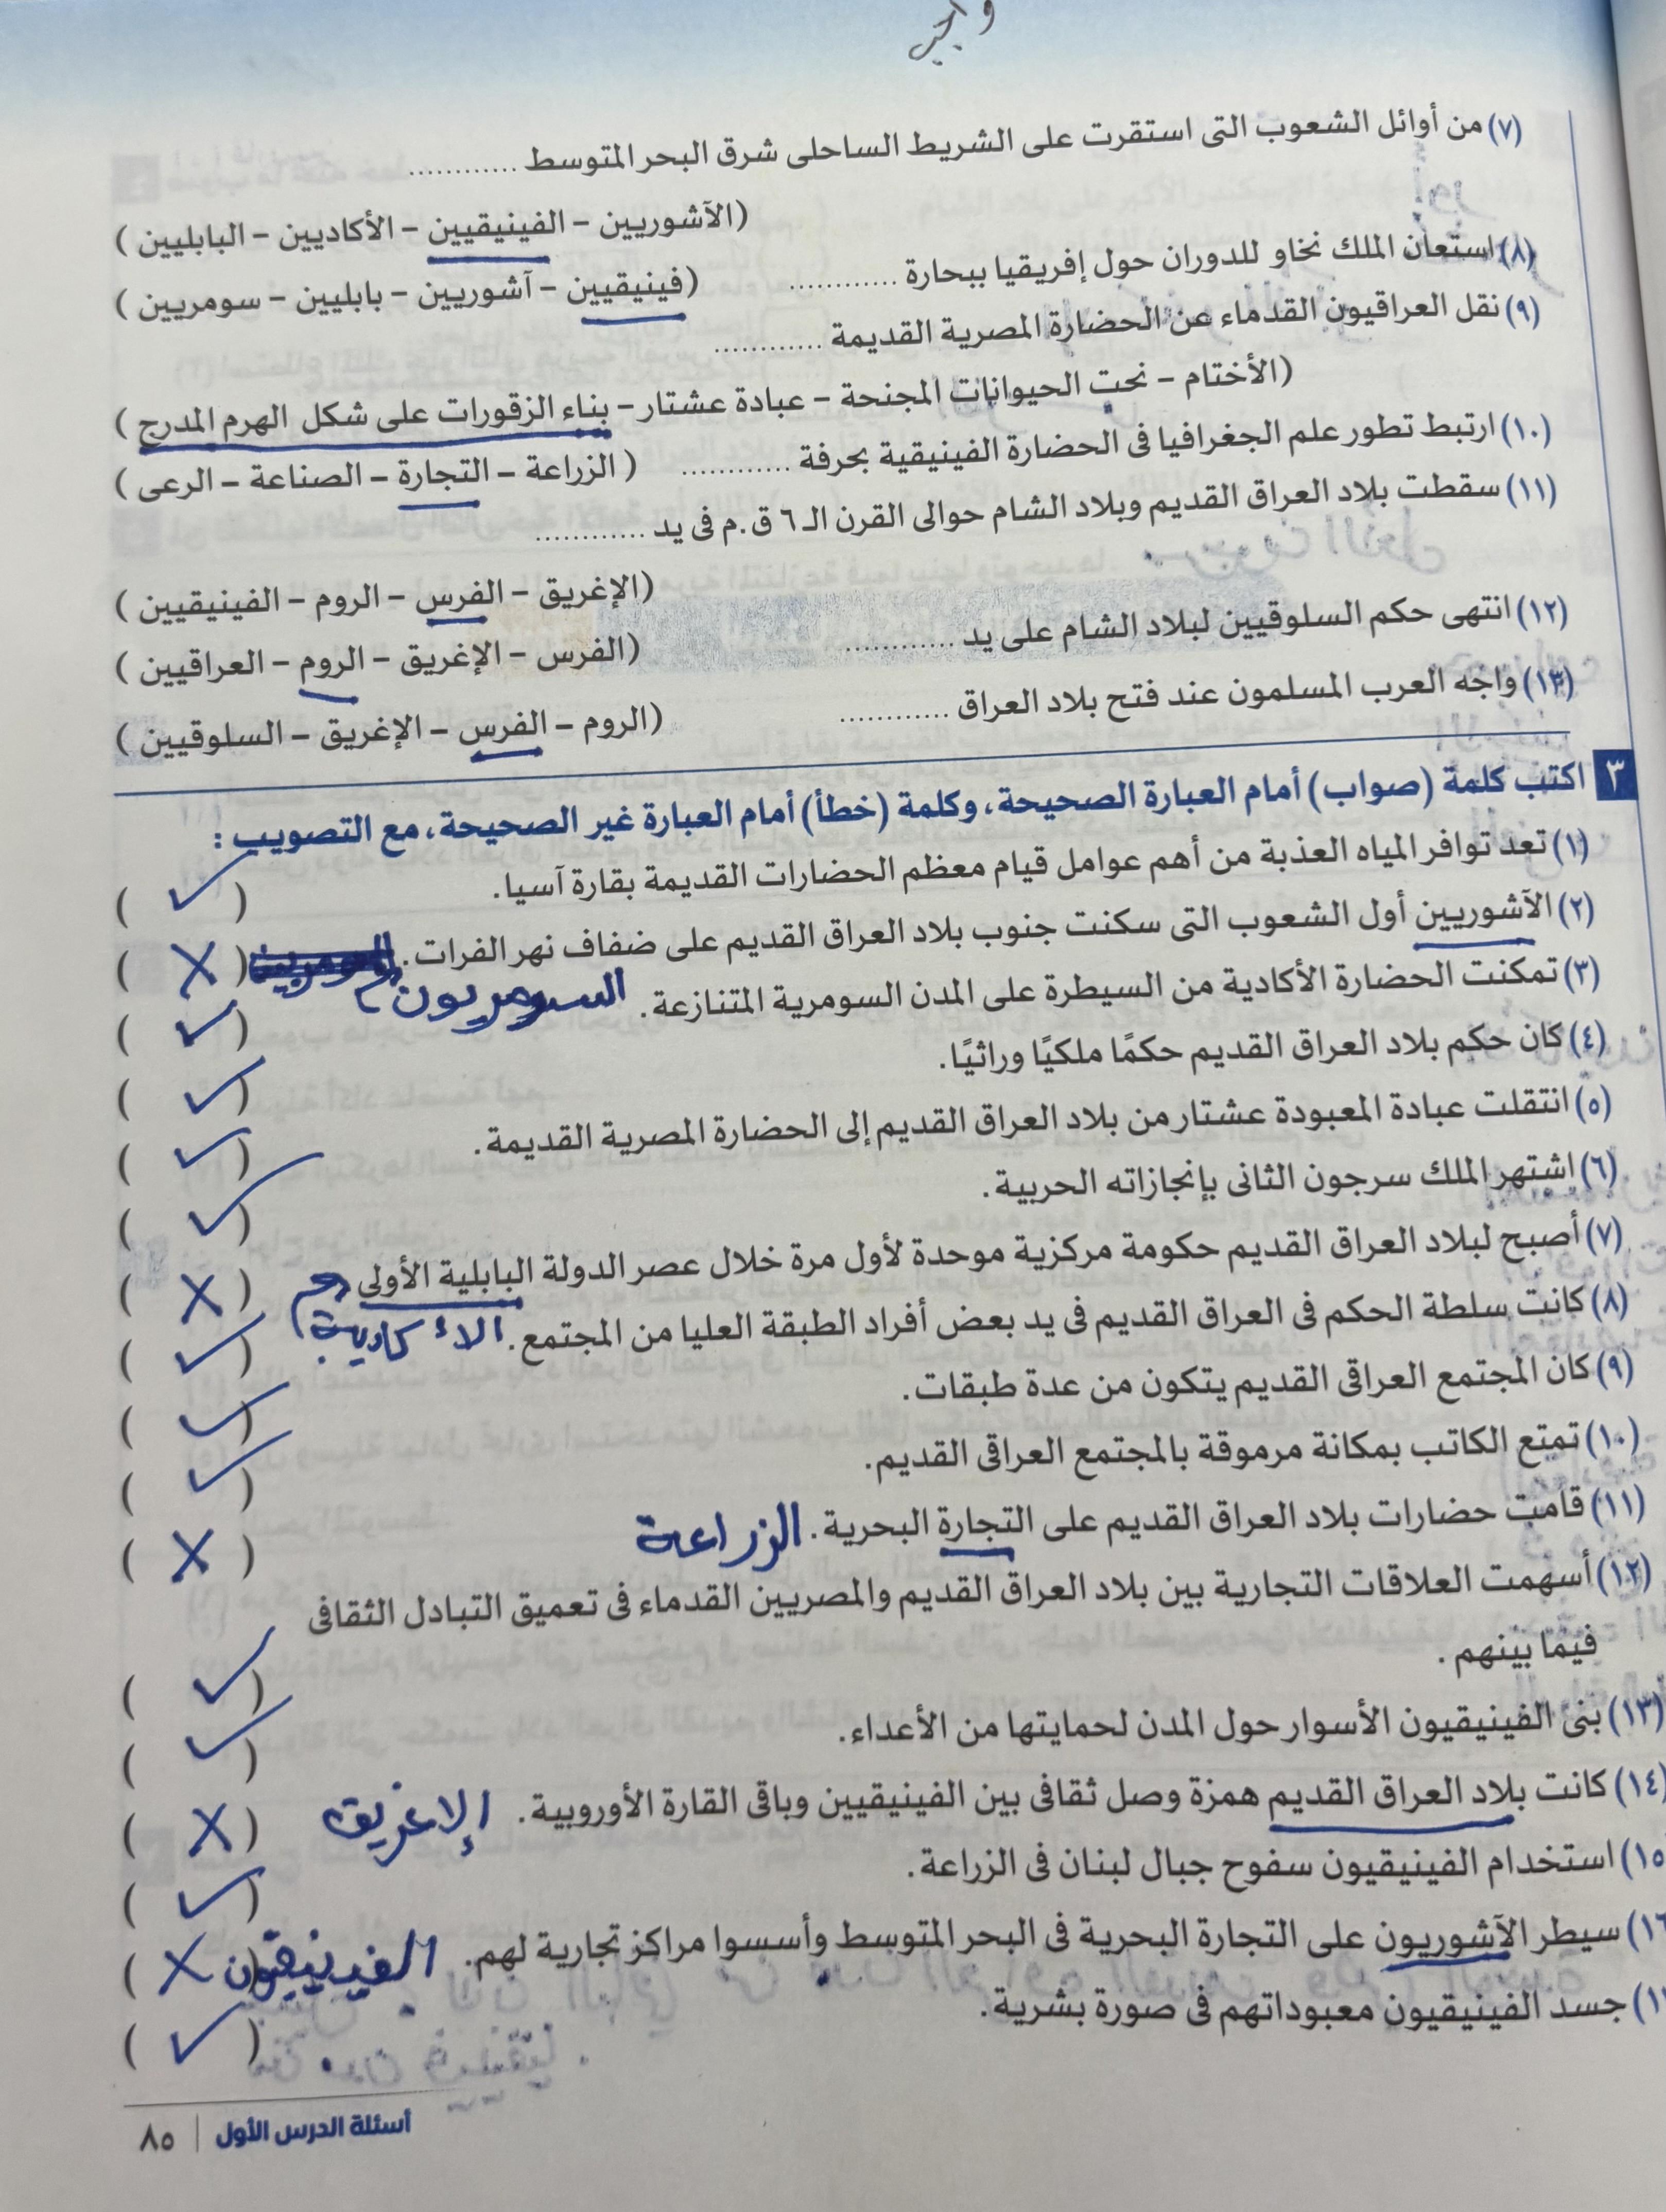 واجب
(٧) من أوائل الشعوب التى استقرت على الشريط الساحلى شرق البحر المتوسط ............
(الآشوريين – الفينيقيين – الأكاديين – البابليين)
(٨) استعان الملك نخاو للدوران حول إفريقيا ببحارة ............
(فينيقيين – آشوريين – بابليين – سومريين)
(٩) نقل العراقيون القدماء عن الحضارة المصرية القديمة ............
(الأختام – نحت الحيوانات المجنحة – عبادة عشتار – بناء الزقورات على شكل الهرم المدرج)
(١٠) ارتبط تطور علم الجغرافيا فى الحضارة الفينيقية بحرفة ............ (الزراعة – التجارة – الصناعة – الرعى)
(١١) سقطت بلاد العراق القديم وبلاد الشام حوالى القرن الـ ٦ ق.م فى يد ............
(الإغريق – الفرس – الروم – الفينيقيين)
(١٢) انتهى حكم السلوقيين لبلاد الشام على يد ............
(الفرس – الإغريق – الروم – العراقيين)
(١٣) واجه العرب المسلمون عند فتح بلاد العراق ............
(الروم – الفرس – الإغريق – السلوقيين)
٣ اكتب كلمة (صواب) أمام العبارة الصحيحة، وكلمة (خطأ) أمام العبارة غير الصحيحة، مع التصويب :
(١) تعد توافر المياه العذبة من أهم عوامل قيام معظم الحضارات القديمة بقارة آسيا. (✓)
(٢) الآشوريين أول الشعوب التى سكنت جنوب بلاد العراق القديم على ضفاف نهر الفرات. (X)
السومريون
(٣) تمكنت الحضارة الأكادية من السيطرة على المدن السومرية المتنازعة. (✓)
(٤) كان حكم بلاد العراق القديم حكمًا ملكيًا وراثيًا. (✓)
(٥) انتقلت عبادة المعبودة عشتار من بلاد العراق القديم إلى الحضارة المصرية القديمة. (✓)
(٦) اشتهر الملك سرجون الثانى بإنجازاته الحربية. (✓)
(٧) أصبح لبلاد العراق القديم حكومة مركزية موحدة لأول مرة خلال عصر الدولة البابلية الأولى (X)
(٨) كانت سلطة الحكم فى العراق القديم فى يد بعض أفراد الطبقة العليا من المجتمع. (✓)
(٩) كان المجتمع العراقى القديم يتكون من عدة طبقات. (✓)
(١٠) تمتع الكاتب بمكانة مرموقة بالمجتمع العراقى القديم. (✓)
(١١) قامت حضارات بلاد العراق القديم على التجارة البحرية. الزراعة (X)
(١٢) أسهمت العلاقات التجارية بين بلاد العراق القديم والمصريين القدماء فى تعميق التبادل الثقافى
فيما بينهم. (✓)
(١٣) بنى الفينيقيون الأسوار حول المدن لحمايتها من الأعداء. (✓)
(١٤) كانت بلاد العراق القديم همزة وصل ثقافى بين الفينيقيين وباقى القارة الأوروبية. الإغريق (X)
(١٥) استخدام الفينيقيون سفوح جبال لبنان فى الزراعة. (✓)
(١٦) سيطر الآشوريون على التجارة البحرية فى البحر المتوسط وأسسوا مراكز تجارية لهم. الفينيقيون (X)
(١٧) جسد الفينيقيون معبوداتهم فى صورة بشرية. (✓)
أسئلة الدرس الأول | ٨٥